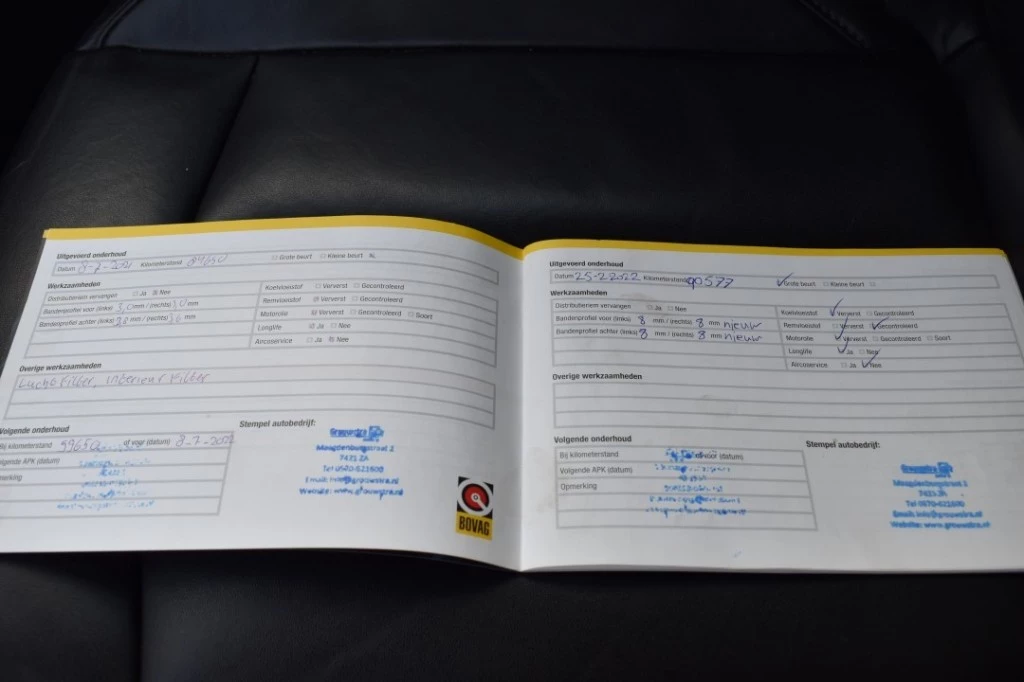 Uitgevoerd onderhoud
Datum 8-2-2021 Kilometerstand Grote beurt Kleine beurt
Werkzaamheden
Distributieriem vervangen Ja Nee
Bandenprofiel voor (links) mm / (rechts) mm
Bandenprofiel achter (links) mm / (rechts) mm
Koelvloeistof Ververst Gecontroleerd
Remvloeistof Ververst Gecontroleerd
Motorolie Ververst Gecontroleerd Soort
Longlife Ja Nee
Aircoservice Ja Nee
Overige werkzaamheden
Luchtfilter, interieur filter
Volgende onderhoud
Bij kilometerstand of voor (datum)
Volgende APK (datum)
Opmerking
Stempel autobedrijf:
Grouwstra
7431 ZA
Tel 0570-621600
Email: info@grouwstra.nl
Website: www.grouwstra.nl
BOVAG
Uitgevoerd onderhoud
Datum 25-2 2022 Kilometerstand 90577 Grote beurt Kleine beurt
Werkzaamheden
Distributieriem vervangen Ja Nee
Bandenprofiel voor (links) 8 mm / (rechts) 8 mm nieuw
Bandenprofiel achter (links) 8 mm / (rechts) 8 mm nieuw
Koelvloeistof Ververst Gecontroleerd
Remvloeistof Ververst Gecontroleerd
Motorolie Ververst Gecontroleerd Soort
Longlife Ja Nee
Aircoservice Ja Nee
Overige werkzaamheden
Volgende onderhoud
Bij kilometerstand of voor (datum)
Volgende APK (datum)
Opmerking
Stempel autobedrijf:
Grouwstra
Tel 0570-621600
Email: info@grouwstra.nl
Website: www.grouwstra.nl